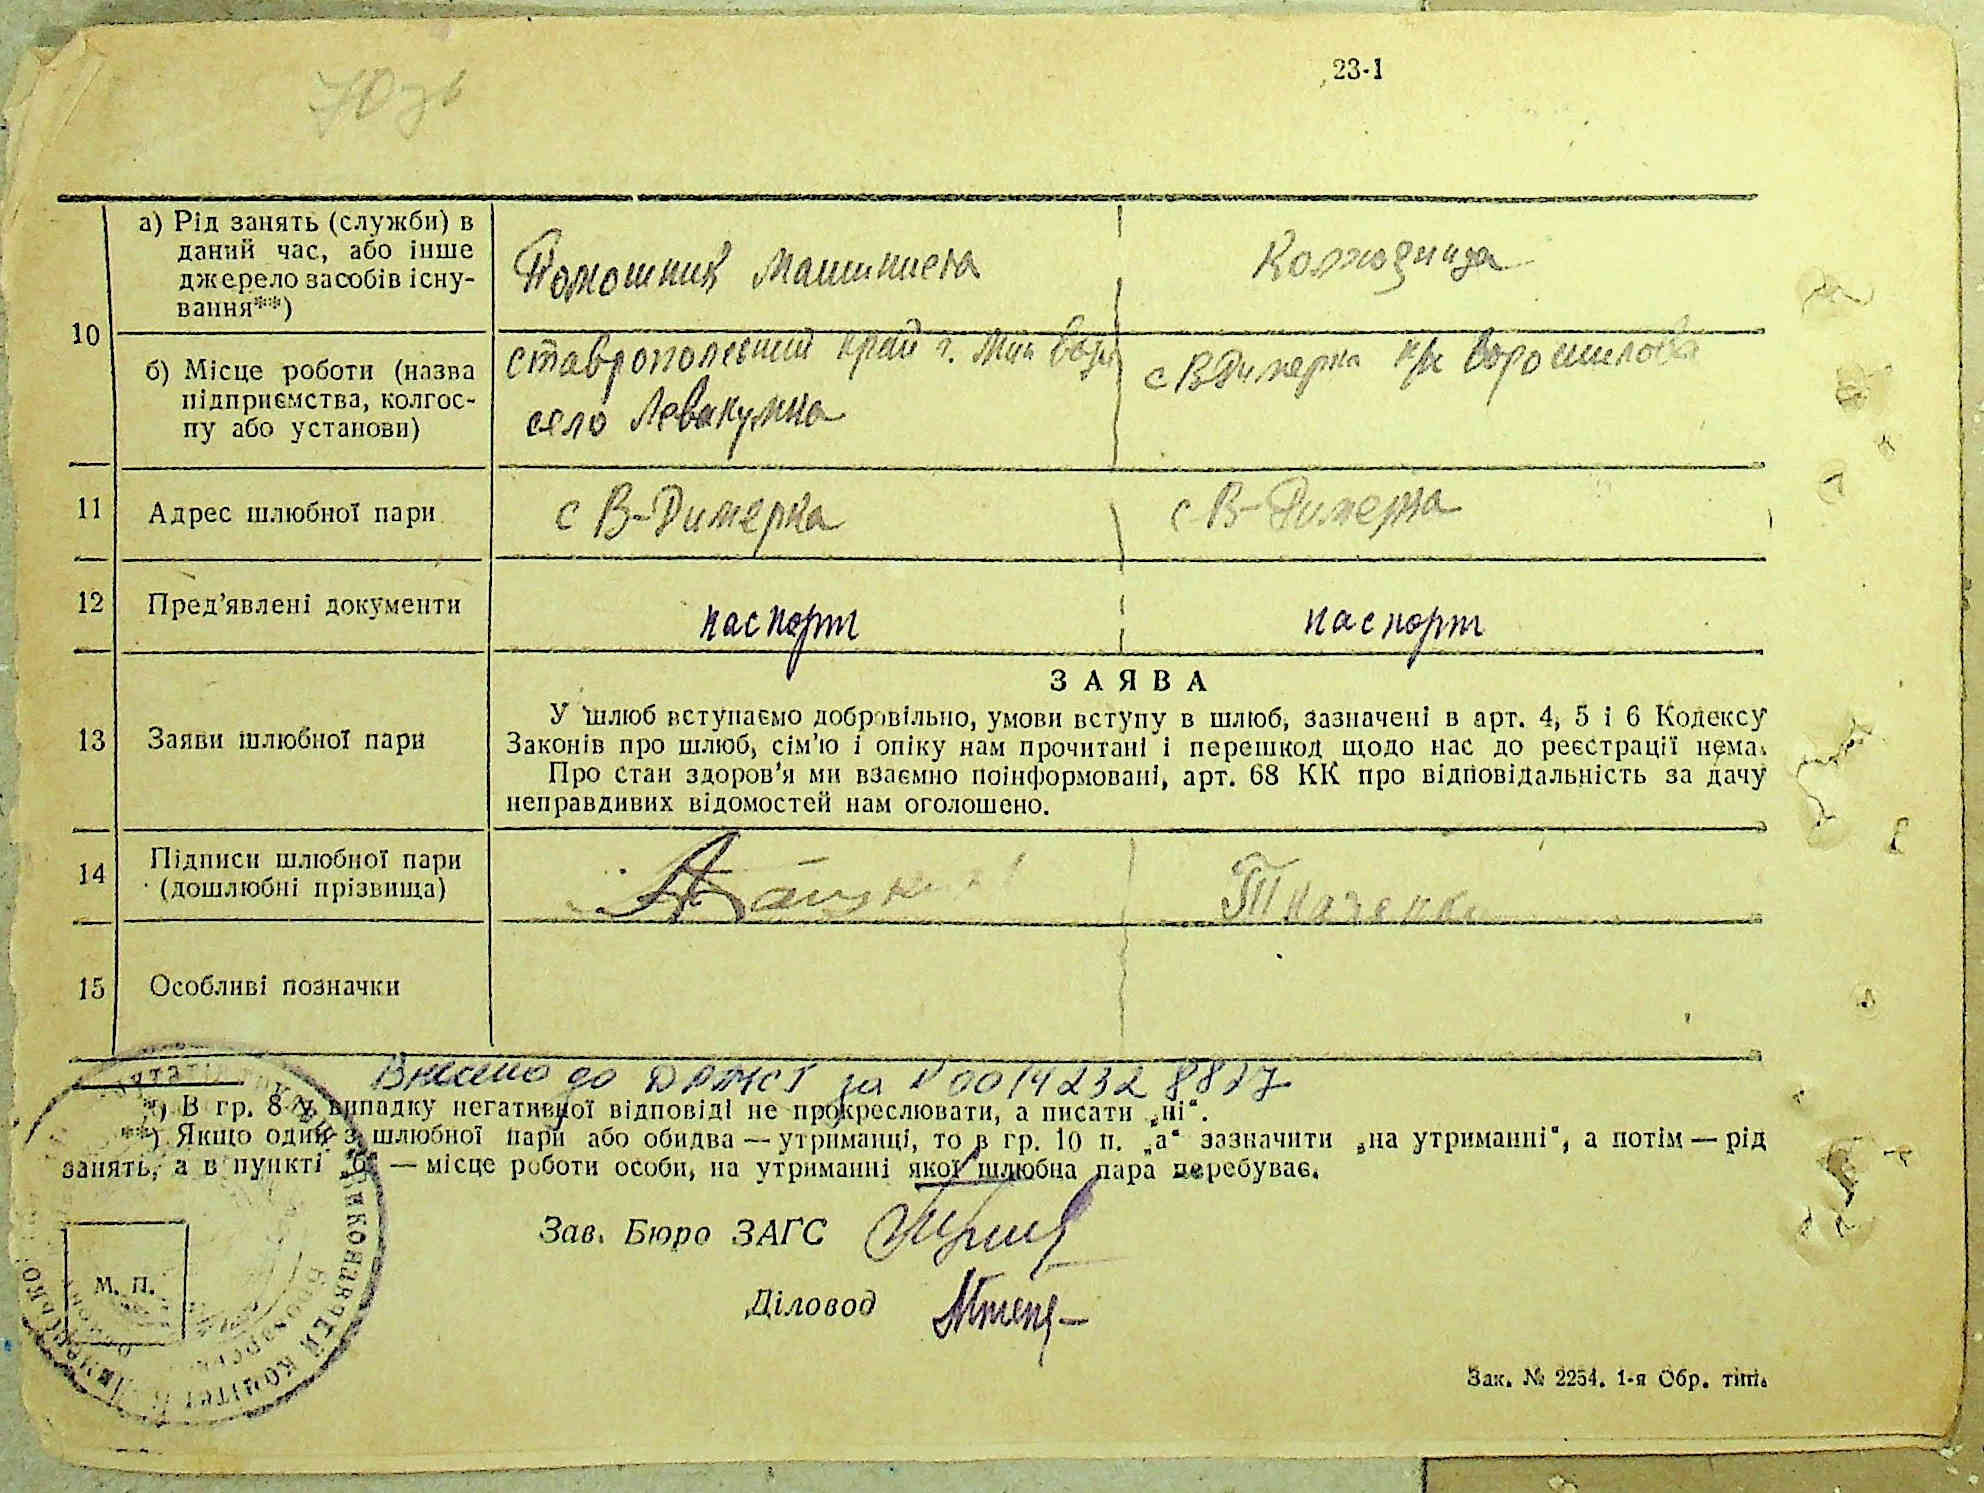 23-1
10
а) Рід занять (службы) в
даний час, або інше
джерело засобів існу-
вання**)
Помошник Машиниста
Колхозница
б) Місце роботи (назва
підприємства, колгос-
пу або установи)
Ставропольский край г. Мин Воды
село Левокумка
с ВДимерка к/г Ворошилова
11
Адрес шлюбної пари
с В-Димерка
с В-Димерка
12
Пред'явлені документи
паспорт
паспорт
13
Заяви шлюбної пари
ЗАЯВА
У шлюб вступаємо добровільно, умови вступу в шлюб, зазначені в арт. 4, 5 і 6 Кодексу
Законів про шлюб, сім'ю і опіку нам прочитані і перешкод щодо нас до реєстрації нема.
Про стан здоров'я ми взаємно поінформовані, арт. 68 КК про відповідальність за дачу
неправдивих відомостей нам оголошено.
14
Підписи шлюбної пари
(дошлюбні прізвища)
Ткаченко
15
Особливі позначки
Внесено до ДРАЦСГ за N 00142328827
*) В гр. 8 у випадку негативної відповіді не прокреслювати, а писати „ні“.
**) Якщо один з шлюбної пари або обидва — утриманці, то в гр. 10 п. „а“ зазначити „на утриманні“, а потім — рід
занять, а в пункті „б“ — місце роботи особи, на утриманні якої шлюбна пара перебуває.
Зав. Бюро ЗАГС
Діловод
М. П.
Зак. № 2254. 1-я Обр. тип.